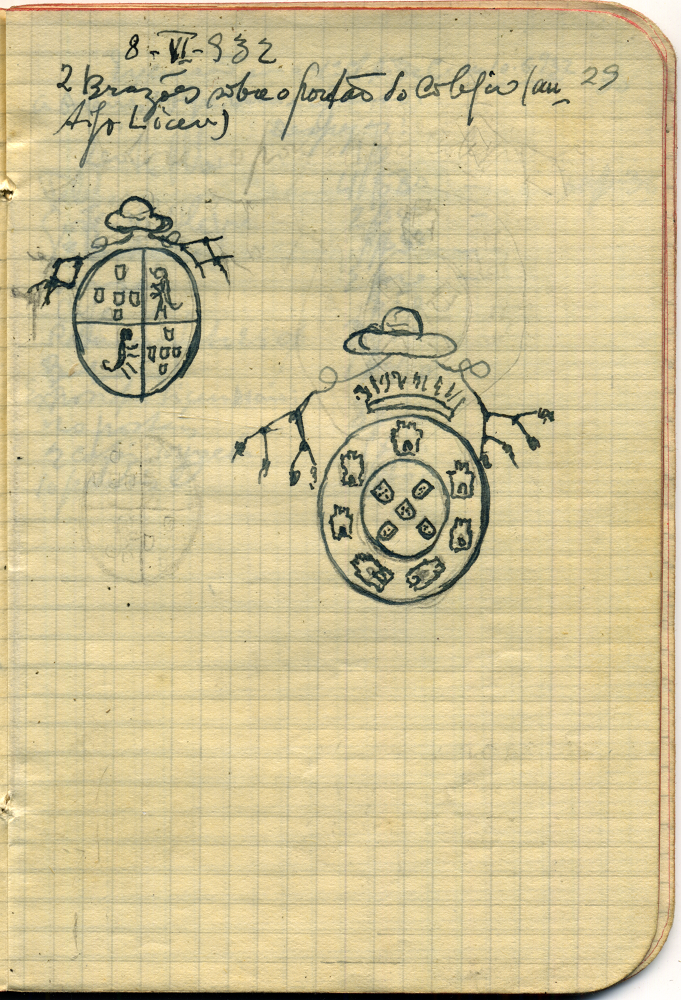 8-VI-932
2 Brazões sobre o portão do Colegio (an 29
tigo Liceu)